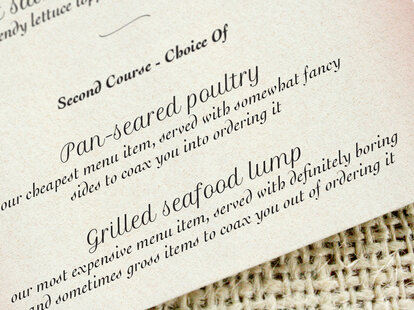 endy lettuce
Second Course - Choice Of
Pan-seared poultry
our cheapest menu item, served with somewhat fancy
sides to coax you into ordering it
Grilled seafood lump
our most expensive menu item, served with definitely boring
and sometimes gross items to coax you out of ordering it